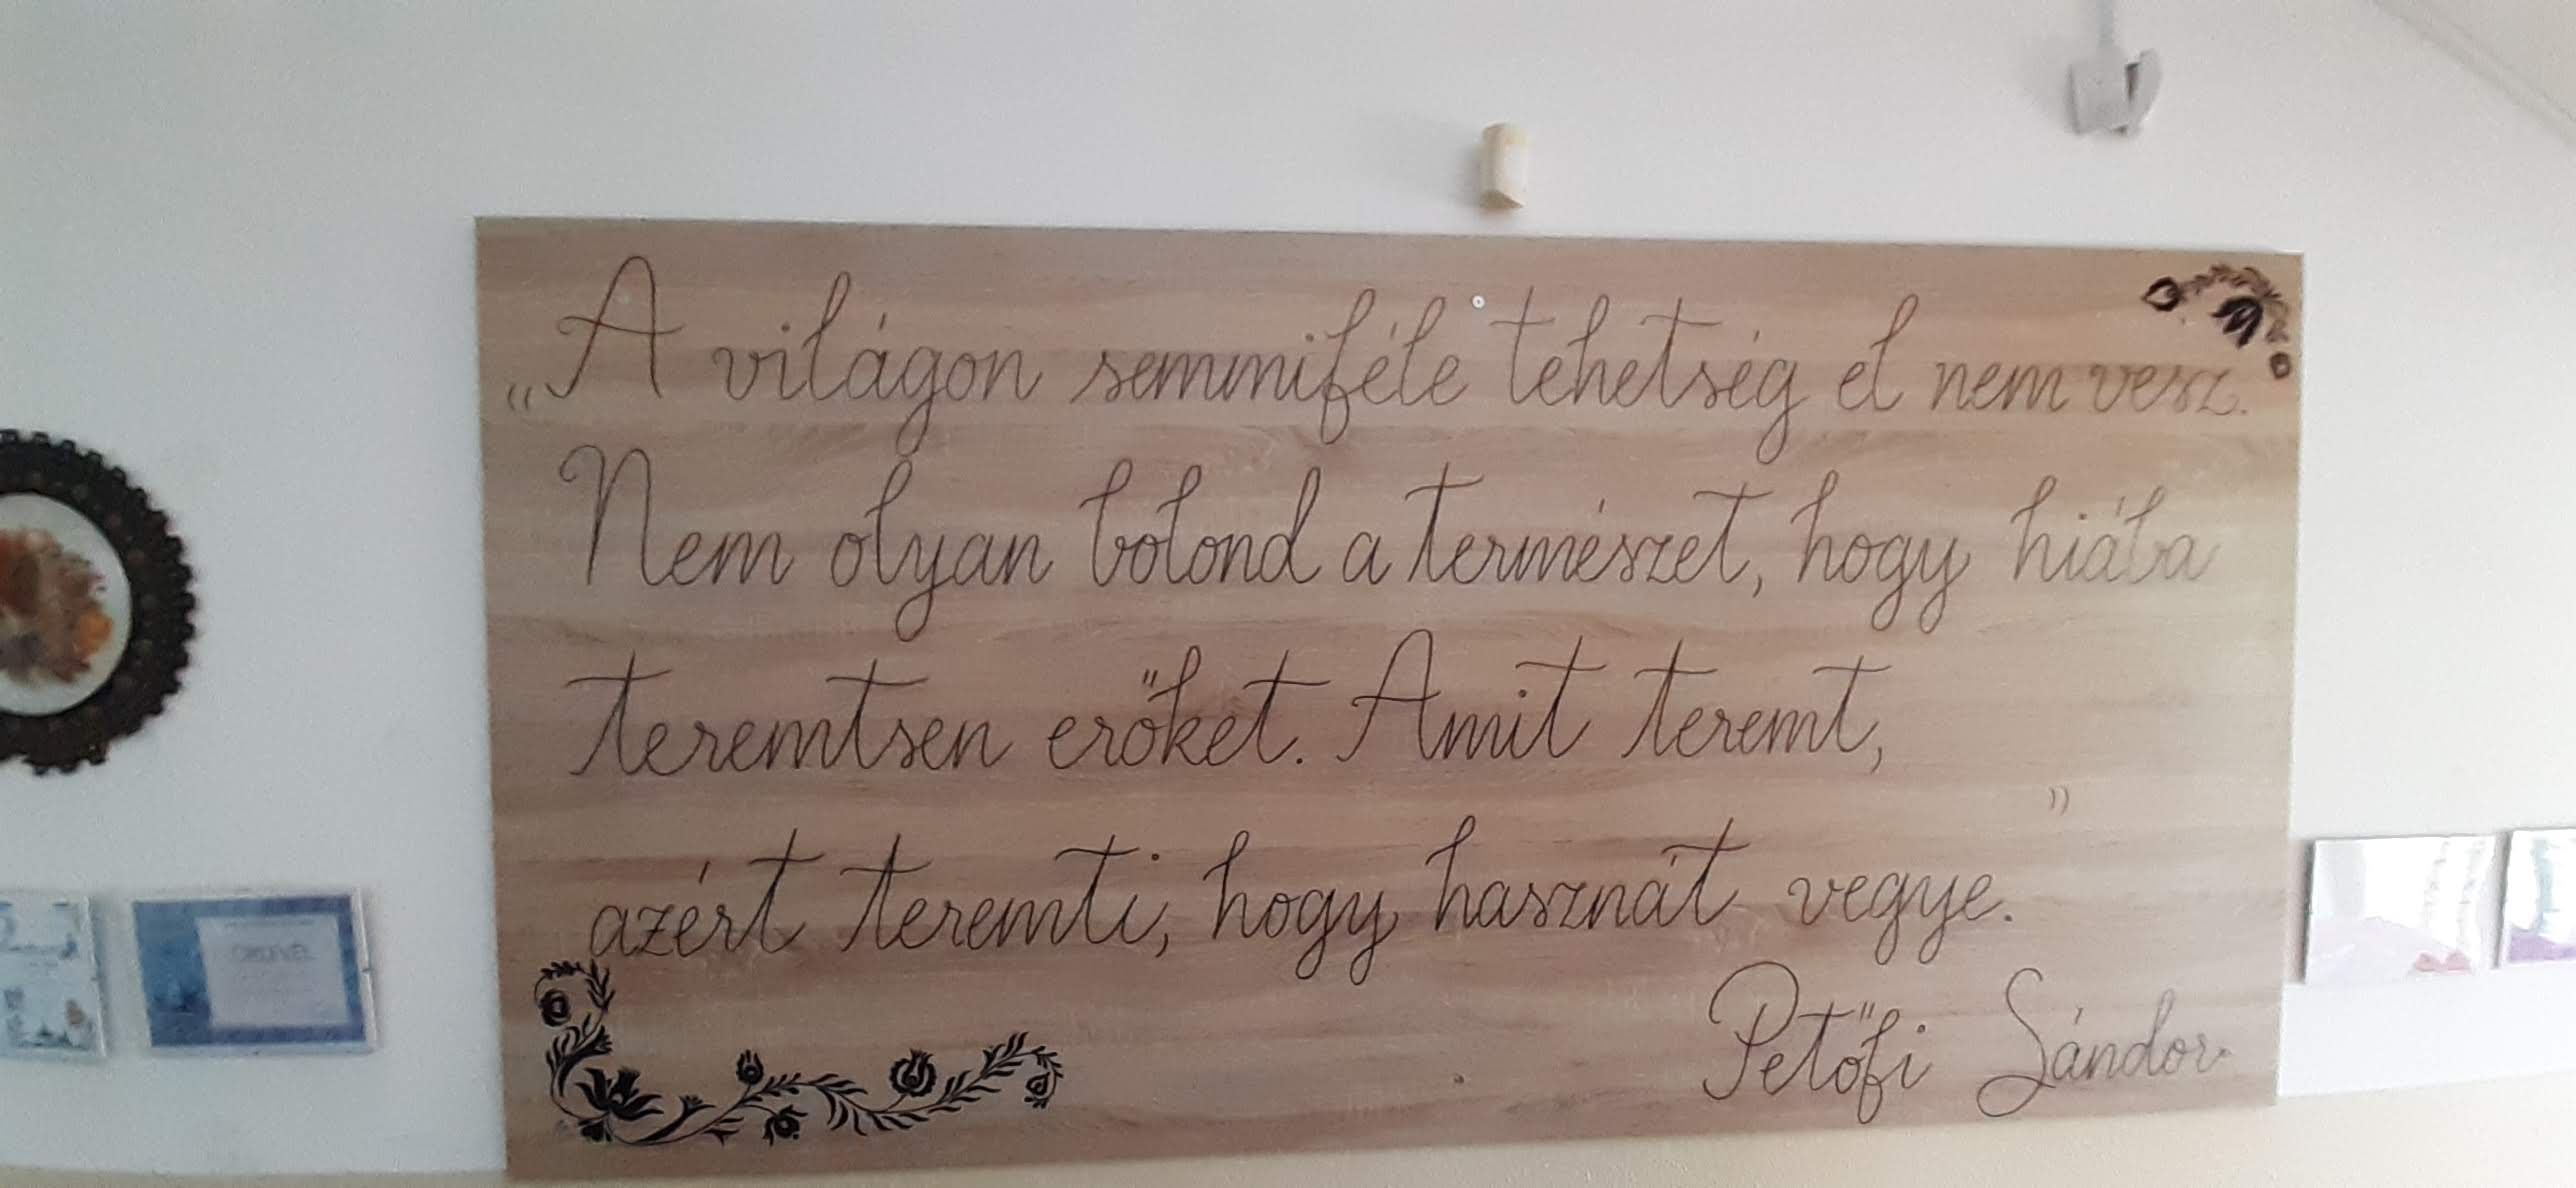 „A világon semmiféle tehetség el nem vesz.
Nem olyan bolond a természet, hogy hiába
teremtsen erőket. Amit teremt,
azért teremti, hogy hasznát vegye.”
Petőfi Sándor
OKLEVÉL